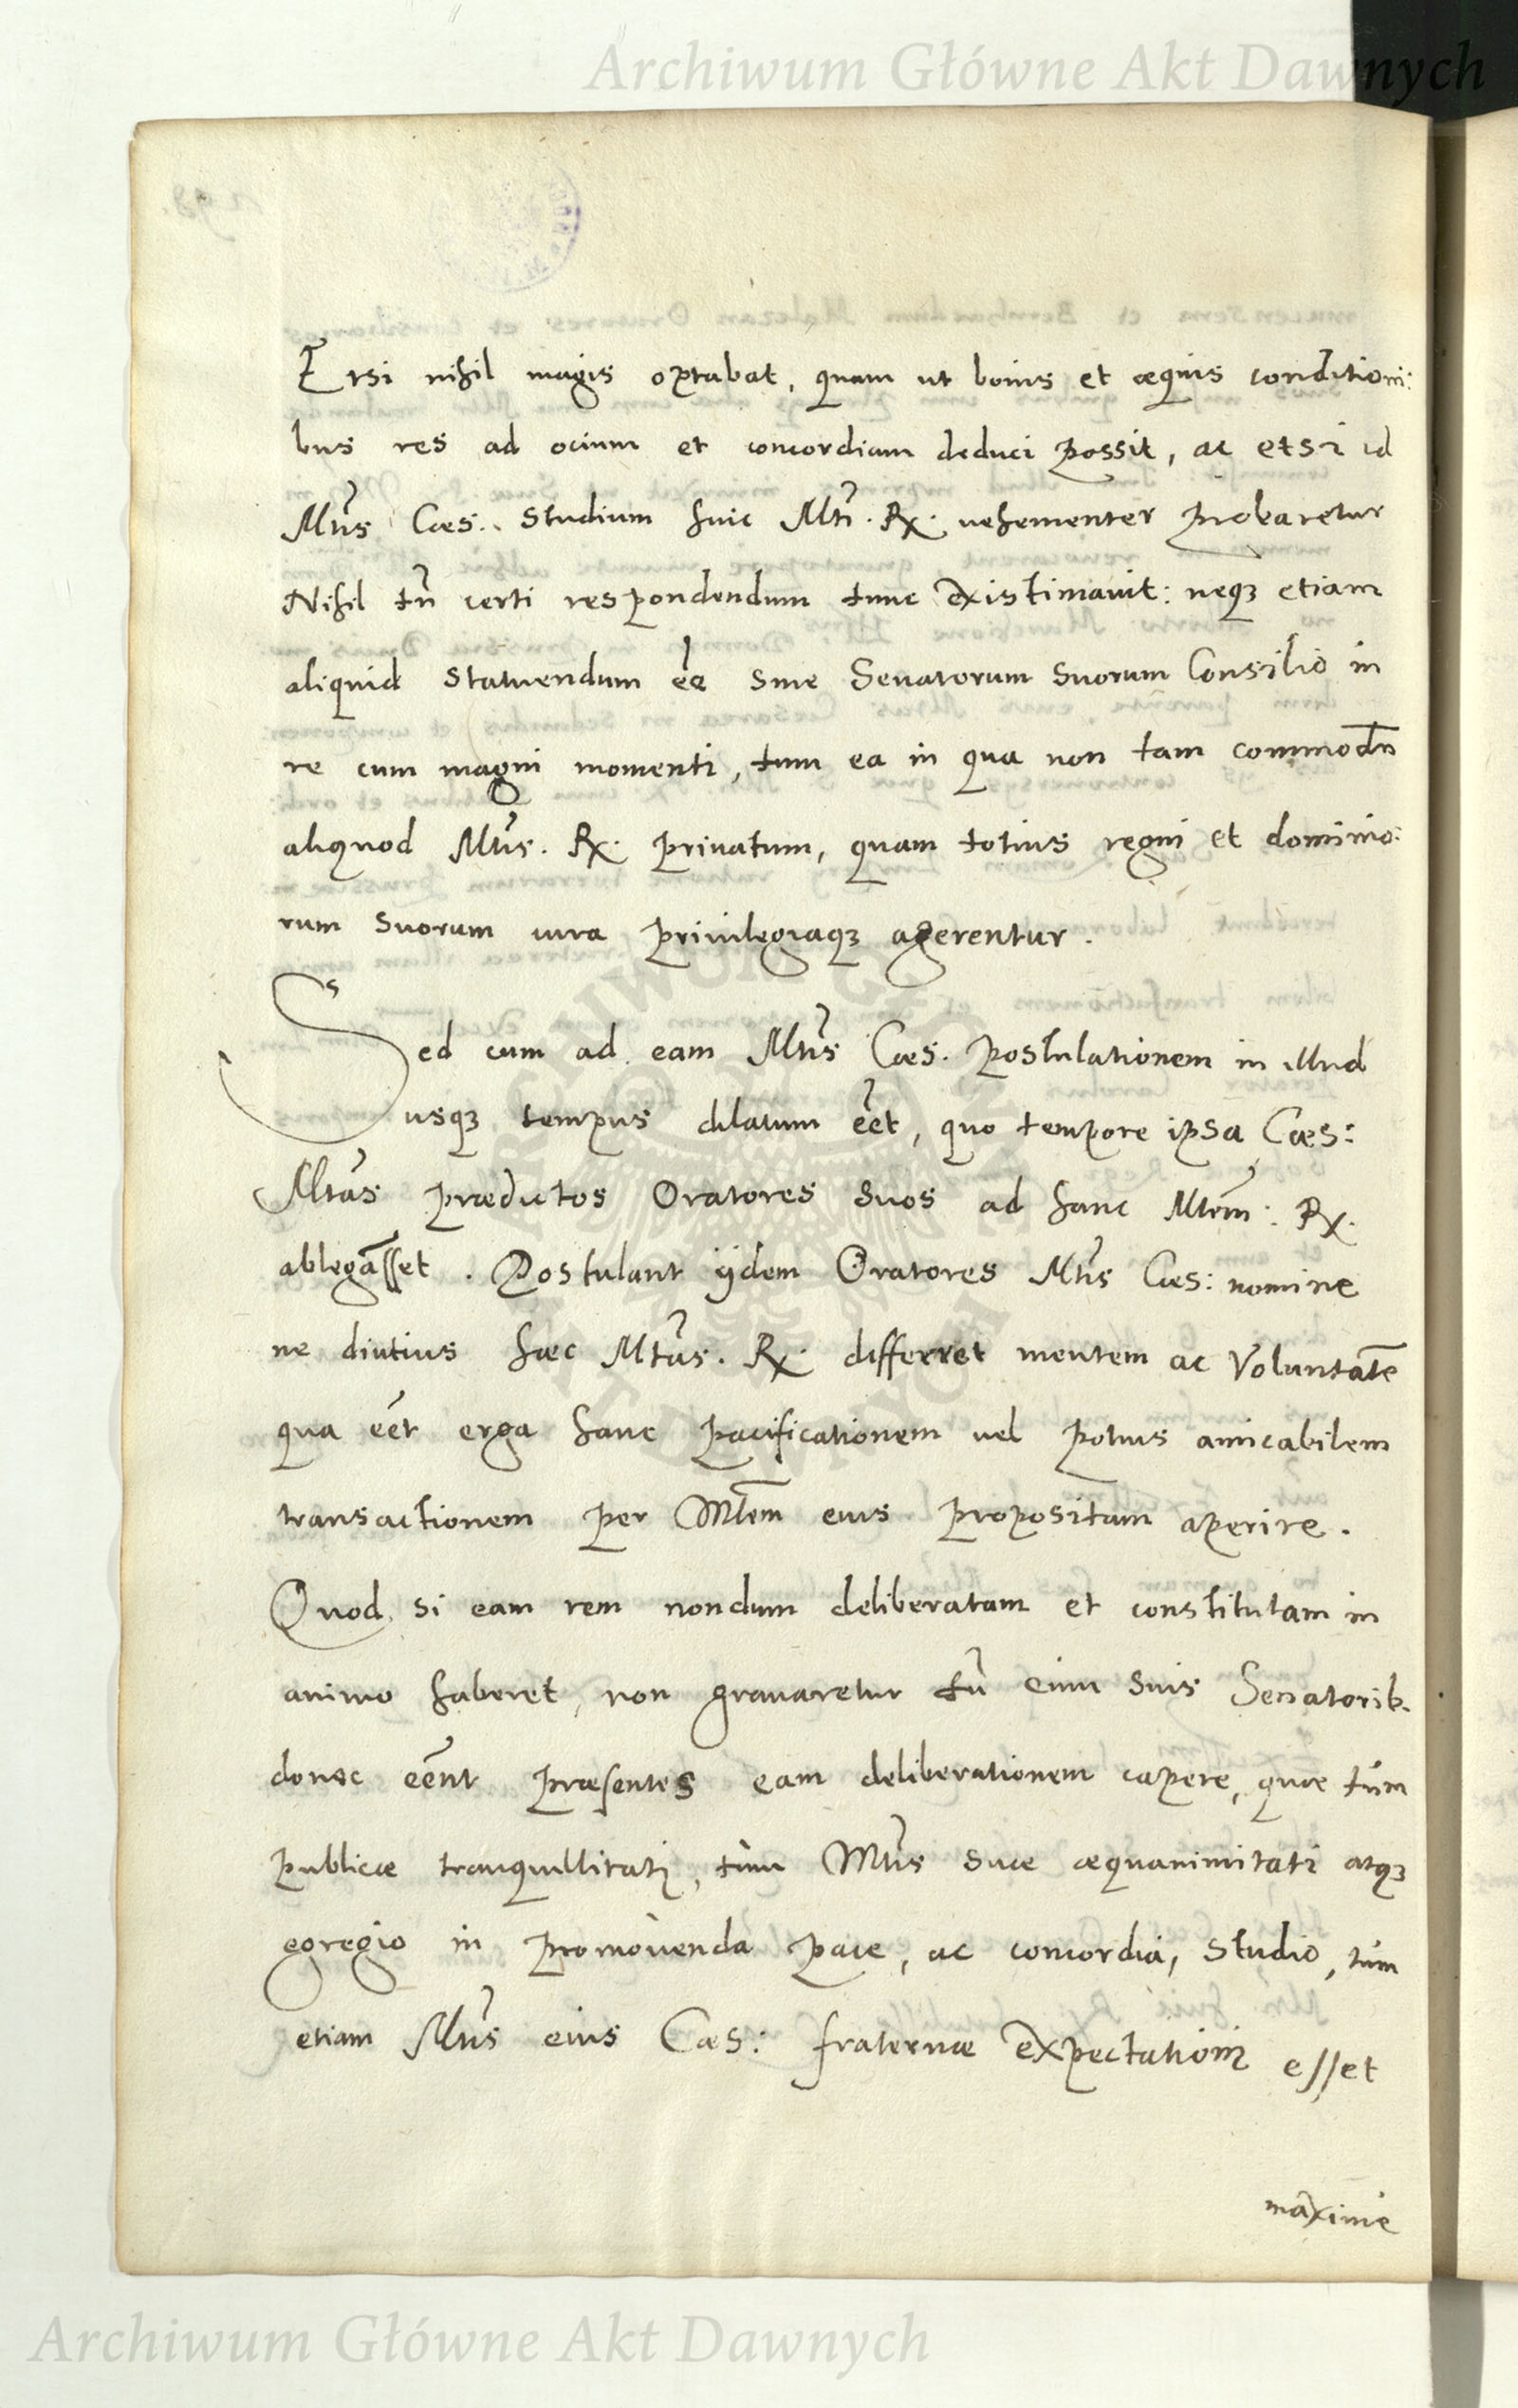 Archiwum Główne Akt Dawnych
Etsi nihil magis optabat, quam ut bonis et æquis conditioni:
bus res ad ocium et concordiam deduci possit, ac etsi id
Mtis Cæs.. studium huic Mti. Rx. vehementer probaretur
Nihil tn̄ certi respondendum tunc existimavit: neqз etiam
aliquid statuendum eē sine Senatorum suorum Consilio in
re cum magni momenti, tum ea in qua non tam commodū
aliquod Mtis. Rx. privatum, quam totius regni et dominio:
rum suorum iura privilegiaqз agerentur.
Sed cum ad eam Mtis Cæs. postulationem in illud
usqз tempus dilatum eēt, quo tempore ipsa Cæs:
Mtas prædictos Oratores suos ad hanc Mtem: Rx.
ablegasset. Postulant ijdem Oratores Mtis Cæs: nomine
ne diutius hæc Mtas. Rx. differret mentem ac Voluntatē
qua eēt erga hanc pacificationem vel potius amicabilem
transactionem per Mtem eius propositam aperire.
Quod si eam rem nondum deliberatam et constitutam in
animo haberet, non gravaretur tn̄ cum suis Senatorib.
donec eēnt præsentes eam deliberationem capere, quæ tum
publicæ tranquillitati, tum Mtis suæ æquanimitati atqз
egregio in promovenda pace, ac concordia, studio, tum
etiam Mtis eius Cæs: fraternæ expectationi esset
maxime
Archiwum Główne Akt Dawnych